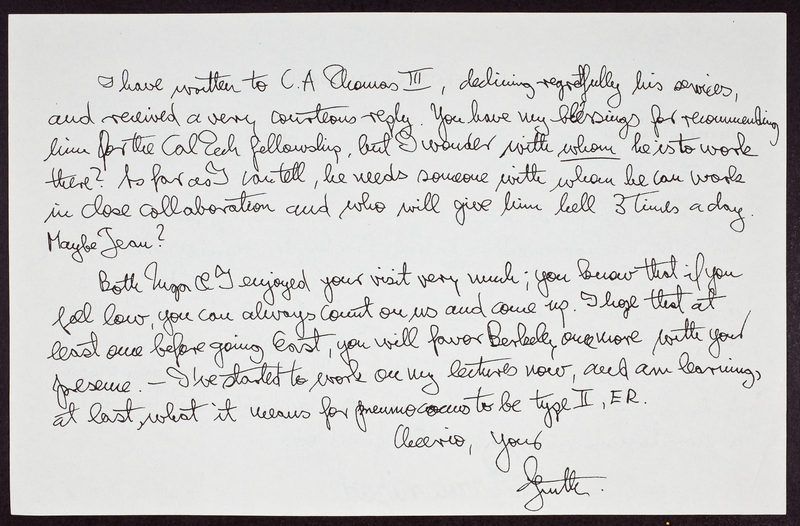 I have written to C.A Thomas III, declining regretfully his services,
and received a very courteous reply. You have my blessings for recommending
him for the CalTech fellowship, but I wonder with whom he is to work
there? As far as I can tell, he needs someone with whom he can work
in close collaboration and who will give him hell 3 times a day.
Maybe Jean?
Both Inga & I enjoyed your visit very much; you know that if you
feel low, you can always count on us and come up. I hope that at
least once before going East, you will favor Berkeley once more with your
presence. – I've started to work on my lectures now, and am learning,
at last, what it means for pneumococcus to be type II, ER.
Cheerio, yours
Gunther.